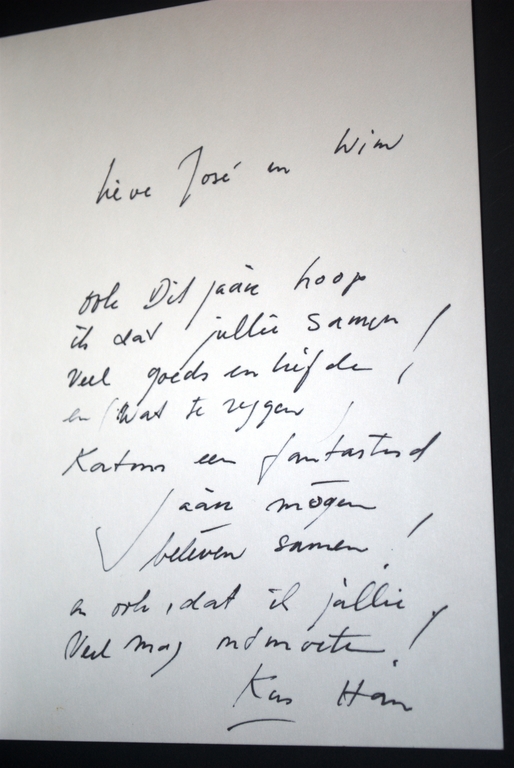 Lieve José en Wim
ook Dit jaar hoop
ik dat jullie samen
veel goeds en liefde,
en wat te zeggen
Kortom een fantastisch
jaar mogen
beleven samen!
en ook, dat ik jullie
veel mag ontmoeten!